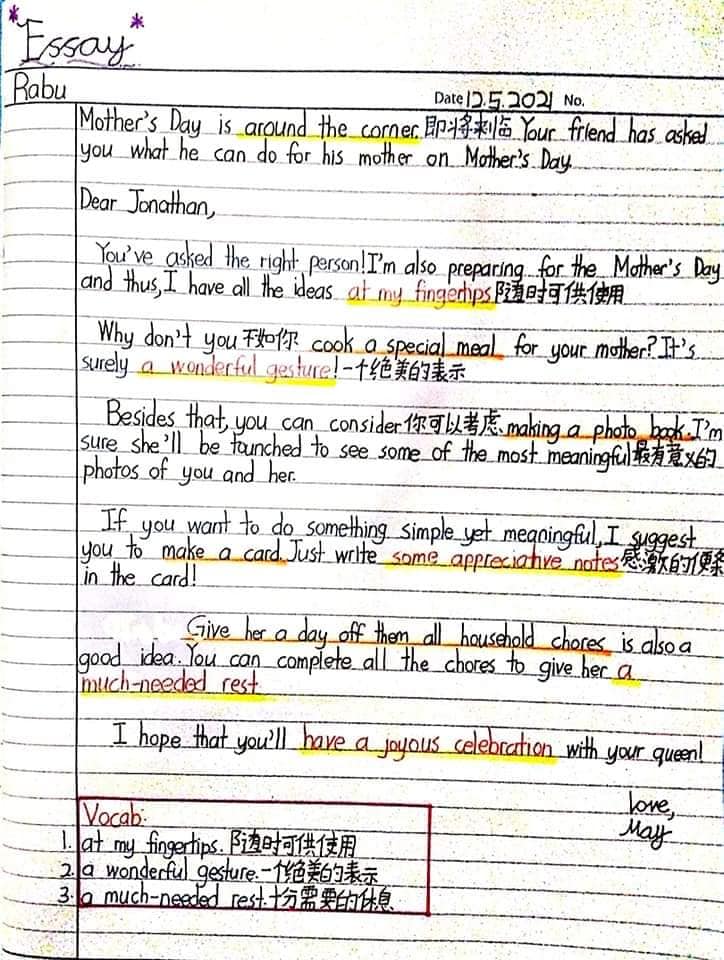 *Essay*
Rabu
Date 12.5.2021 No.
Mother's Day is around the corner.即将来临 Your friend has asked
you what he can do for his mother on Mother's Day
Dear Jonathan,
You've asked the right person! I'm also preparing for the Mother's Day
and thus, I have all the ideas at my fingertips随时可供使用
Why don't you 不如你 cook a special meal for your mother? It's
surely a wonderful gesture!一个绝美的表示
Besides that, you can consider你可以考虑 making a photo book. I'm
sure she'll be tounched to see some of the most meaningful最有意义的
photos of you and her.
If you want to do something simple yet meaningful, I suggest
you to make a card. Just write some appreciative notes感激的便条
in the card!
Give her a day off them all household chores is also a
good idea. You can complete all the chores to give her a
much-needed rest
I hope that you'll have a joyous celebration with your queen!
love,
May
Vocab:
1. at my fingertips.随时可供使用
2. a wonderful gesture.一个绝美的表示
3. a much-needed rest.十分需要的休息